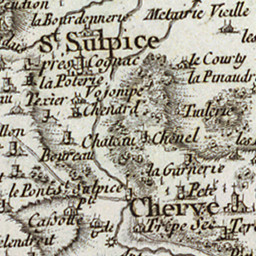 la Bourdonnerie
Metairie Vieille
St Sulpice
pres Cognac
le Courty
la Poterie
la Pinaudr
Vojompe
Texier
Chenard
Tuilerie
Chateau Chenel
Boureau
la Garnerie
le Pont St Sulpice
Pete
Cherve
Cassotte
pte
Trepe Sec
Ter